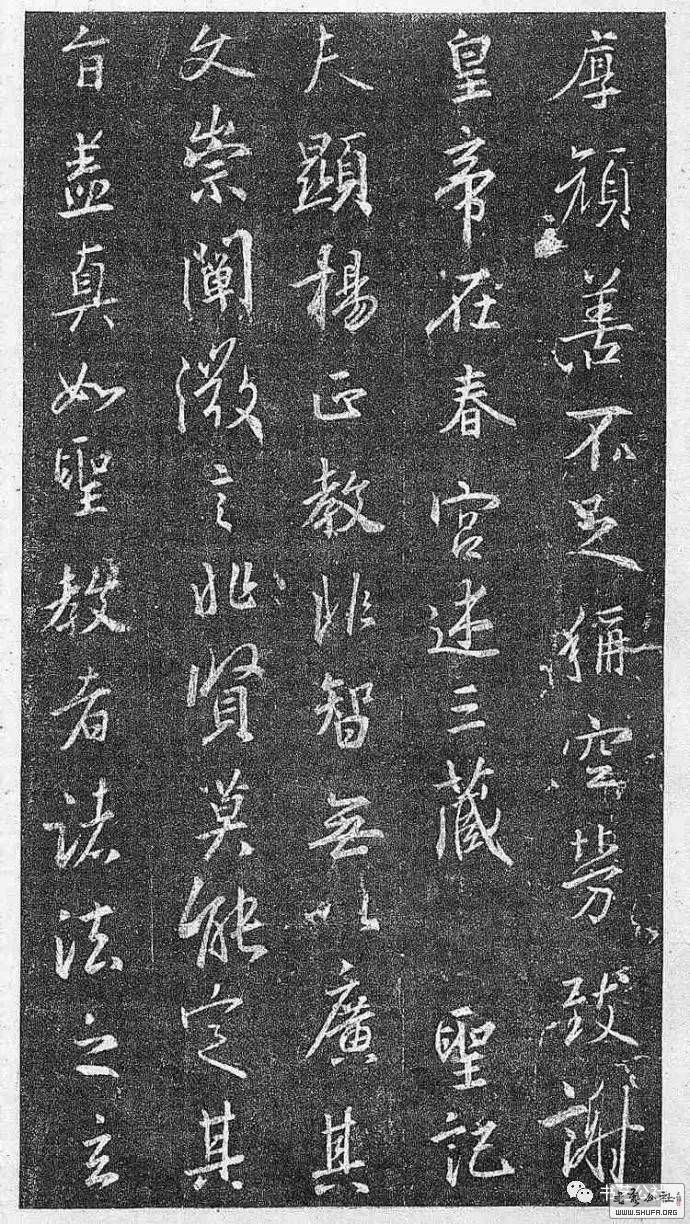 厚顔善不足稱空勞致謝
皇帝在春宮述三藏 聖記
夫顯揚正教非智無以廣其
文崇闡微言非賢莫能定其
旨蓋真如聖教者諸法之玄
WWW.SHUFA.ORG